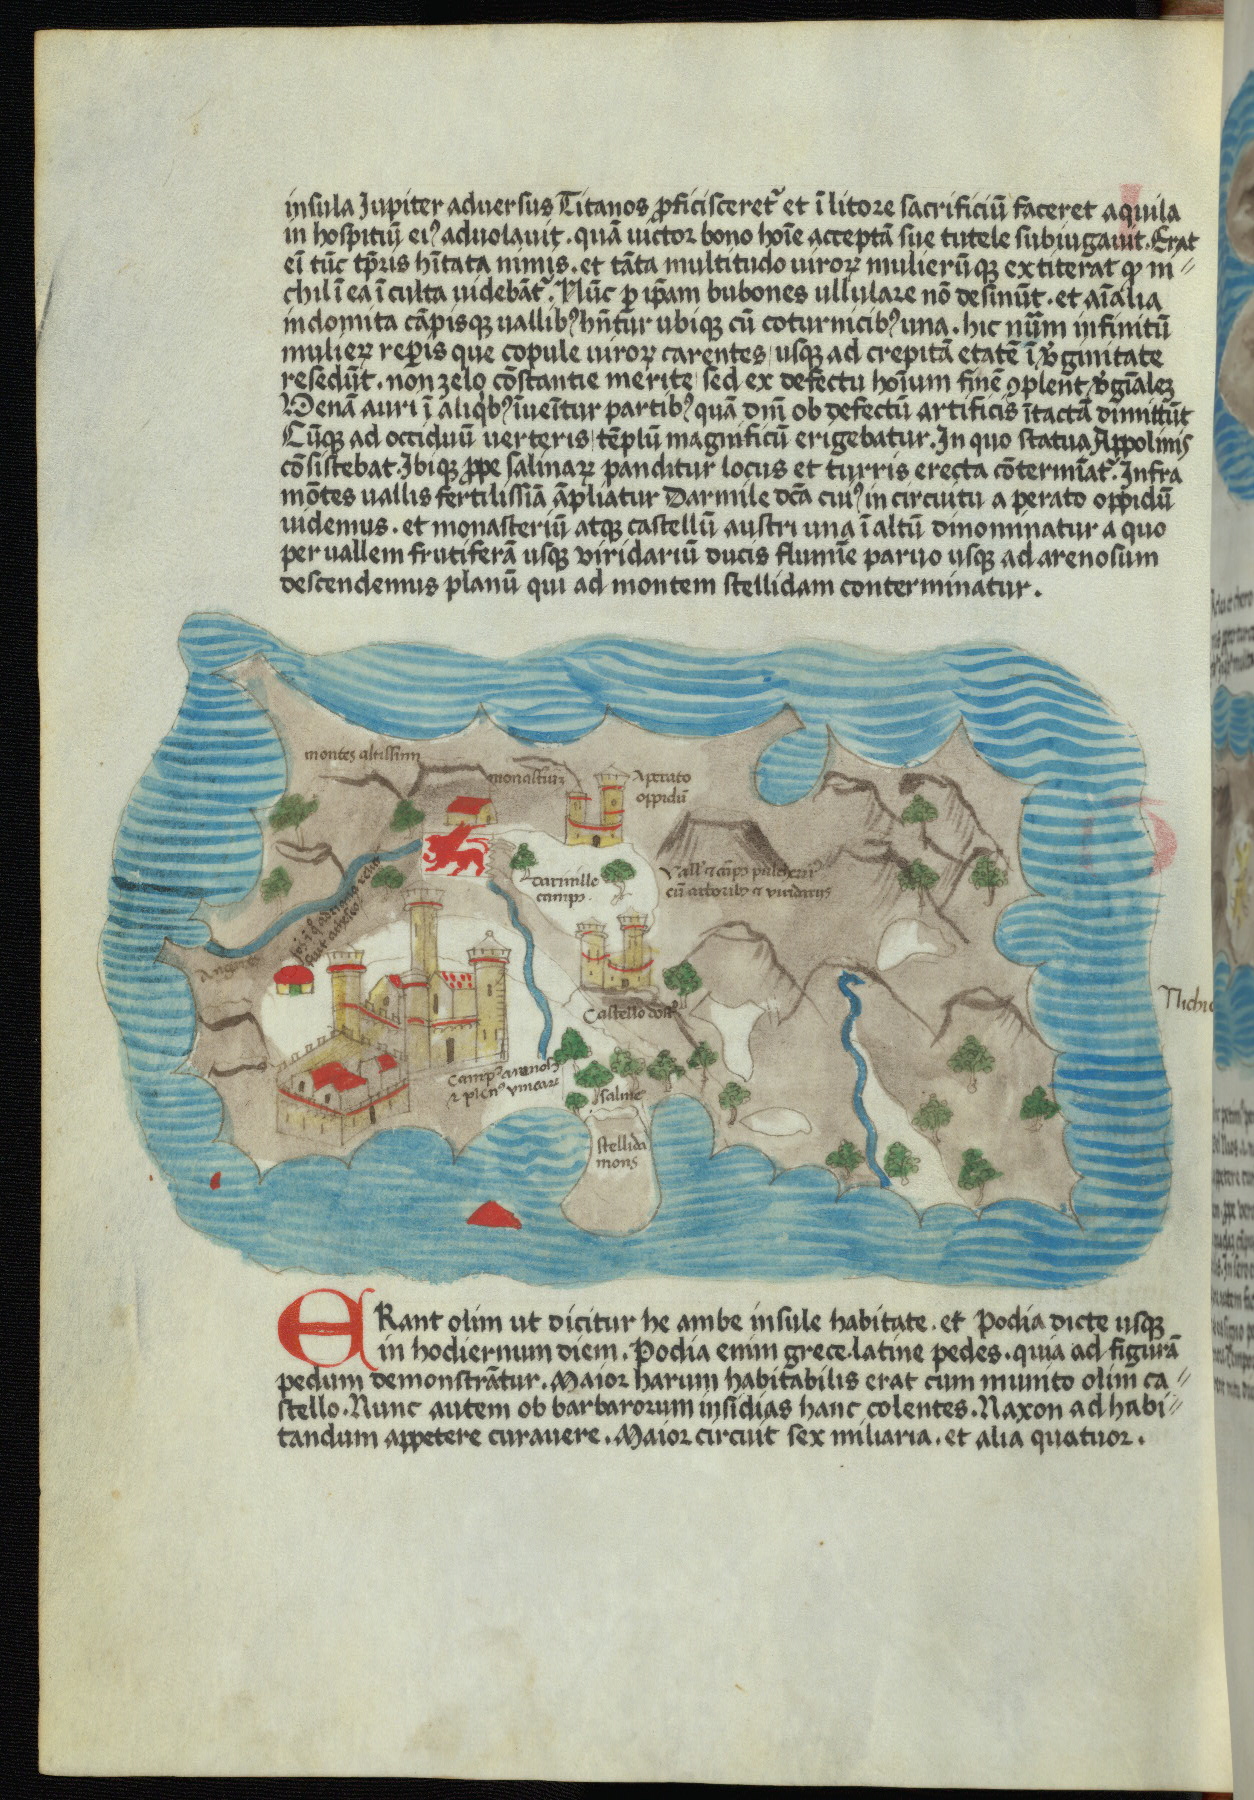 insula Jupiter adversus Titanos ꝓficisceret᷑ et ī litore sacrificiū faceret aquila
in hospitiū eiꝰ advolavit. quā victor bono hoīe acceptā sue tutele subiugavit. Erat
eī tūc tꝑis hītata nimis. et tāta multitudo viroꝝ mulierū qꝫ extiterat ꝙ ni〃
chil ī ea īculta videbāt᷑. Nūc ꝑ ip̄am bubones ullulare nō desinūt. et aīalia
indomita cāpisqꝫ vallibꝰ hn̄tur ubiqꝫ cū coturnicibꝰ una. hic nūm infinitū
mulieꝝ reꝑis que copule viroꝝ carentes usqꝫ ad crepitā etatē ī v̉ginitate
resedūt. non zelo cōstantie merite sed ex defectu hoīum finē ꝯplent v̉gīaleꝫ
Venā auri ī aliqbꝰ īveītur partibꝰ quā dnī ob defectū artificis ītactā dimittūt
Cūqꝫ ad occiduū verteris tēplū magnificū erigebatur. In quo statua Appolinis
cōsistebat. Ibiqꝫ ꝓpe salinaꝝ panditur locus et turris erecta cōtermīat᷑. Infra
mōtes vallis fertilissīā āpliatur Darmile dc̄a cuiꝰ in circuitu aperato oppidū
videmus. et monasteriū atqꝫ castellū austri una ī altū dinominatur a quo
per vallem frutiferā usqꝫ viridariū ducis flumīe parvo usqꝫ ad arenosum
descendemus planū qui ad montem stellidam conterminatur.
montes altissimi
monastiuꝫ
Aperato
oppidū
darmille
campꝰ.
Angeres
Castello dost
Campꝰ arenosꝰ
saline
stellida
mons
ERant olim ut dicitur he ambe insule habitate. et Podia dicte usqꝫ
in hodiernum diem. Podia enim grece. latine pedes. quia ad figurā
pedum demonstrātur. Maior harum habitabilis erat cum munito olim ca〃
stello. Nunc autem ob barbarorum insidias hanc colentes. Naxon ad habi〃
tandum appetere curavere. Maior circuit sex miliaria. et alia quatuor.